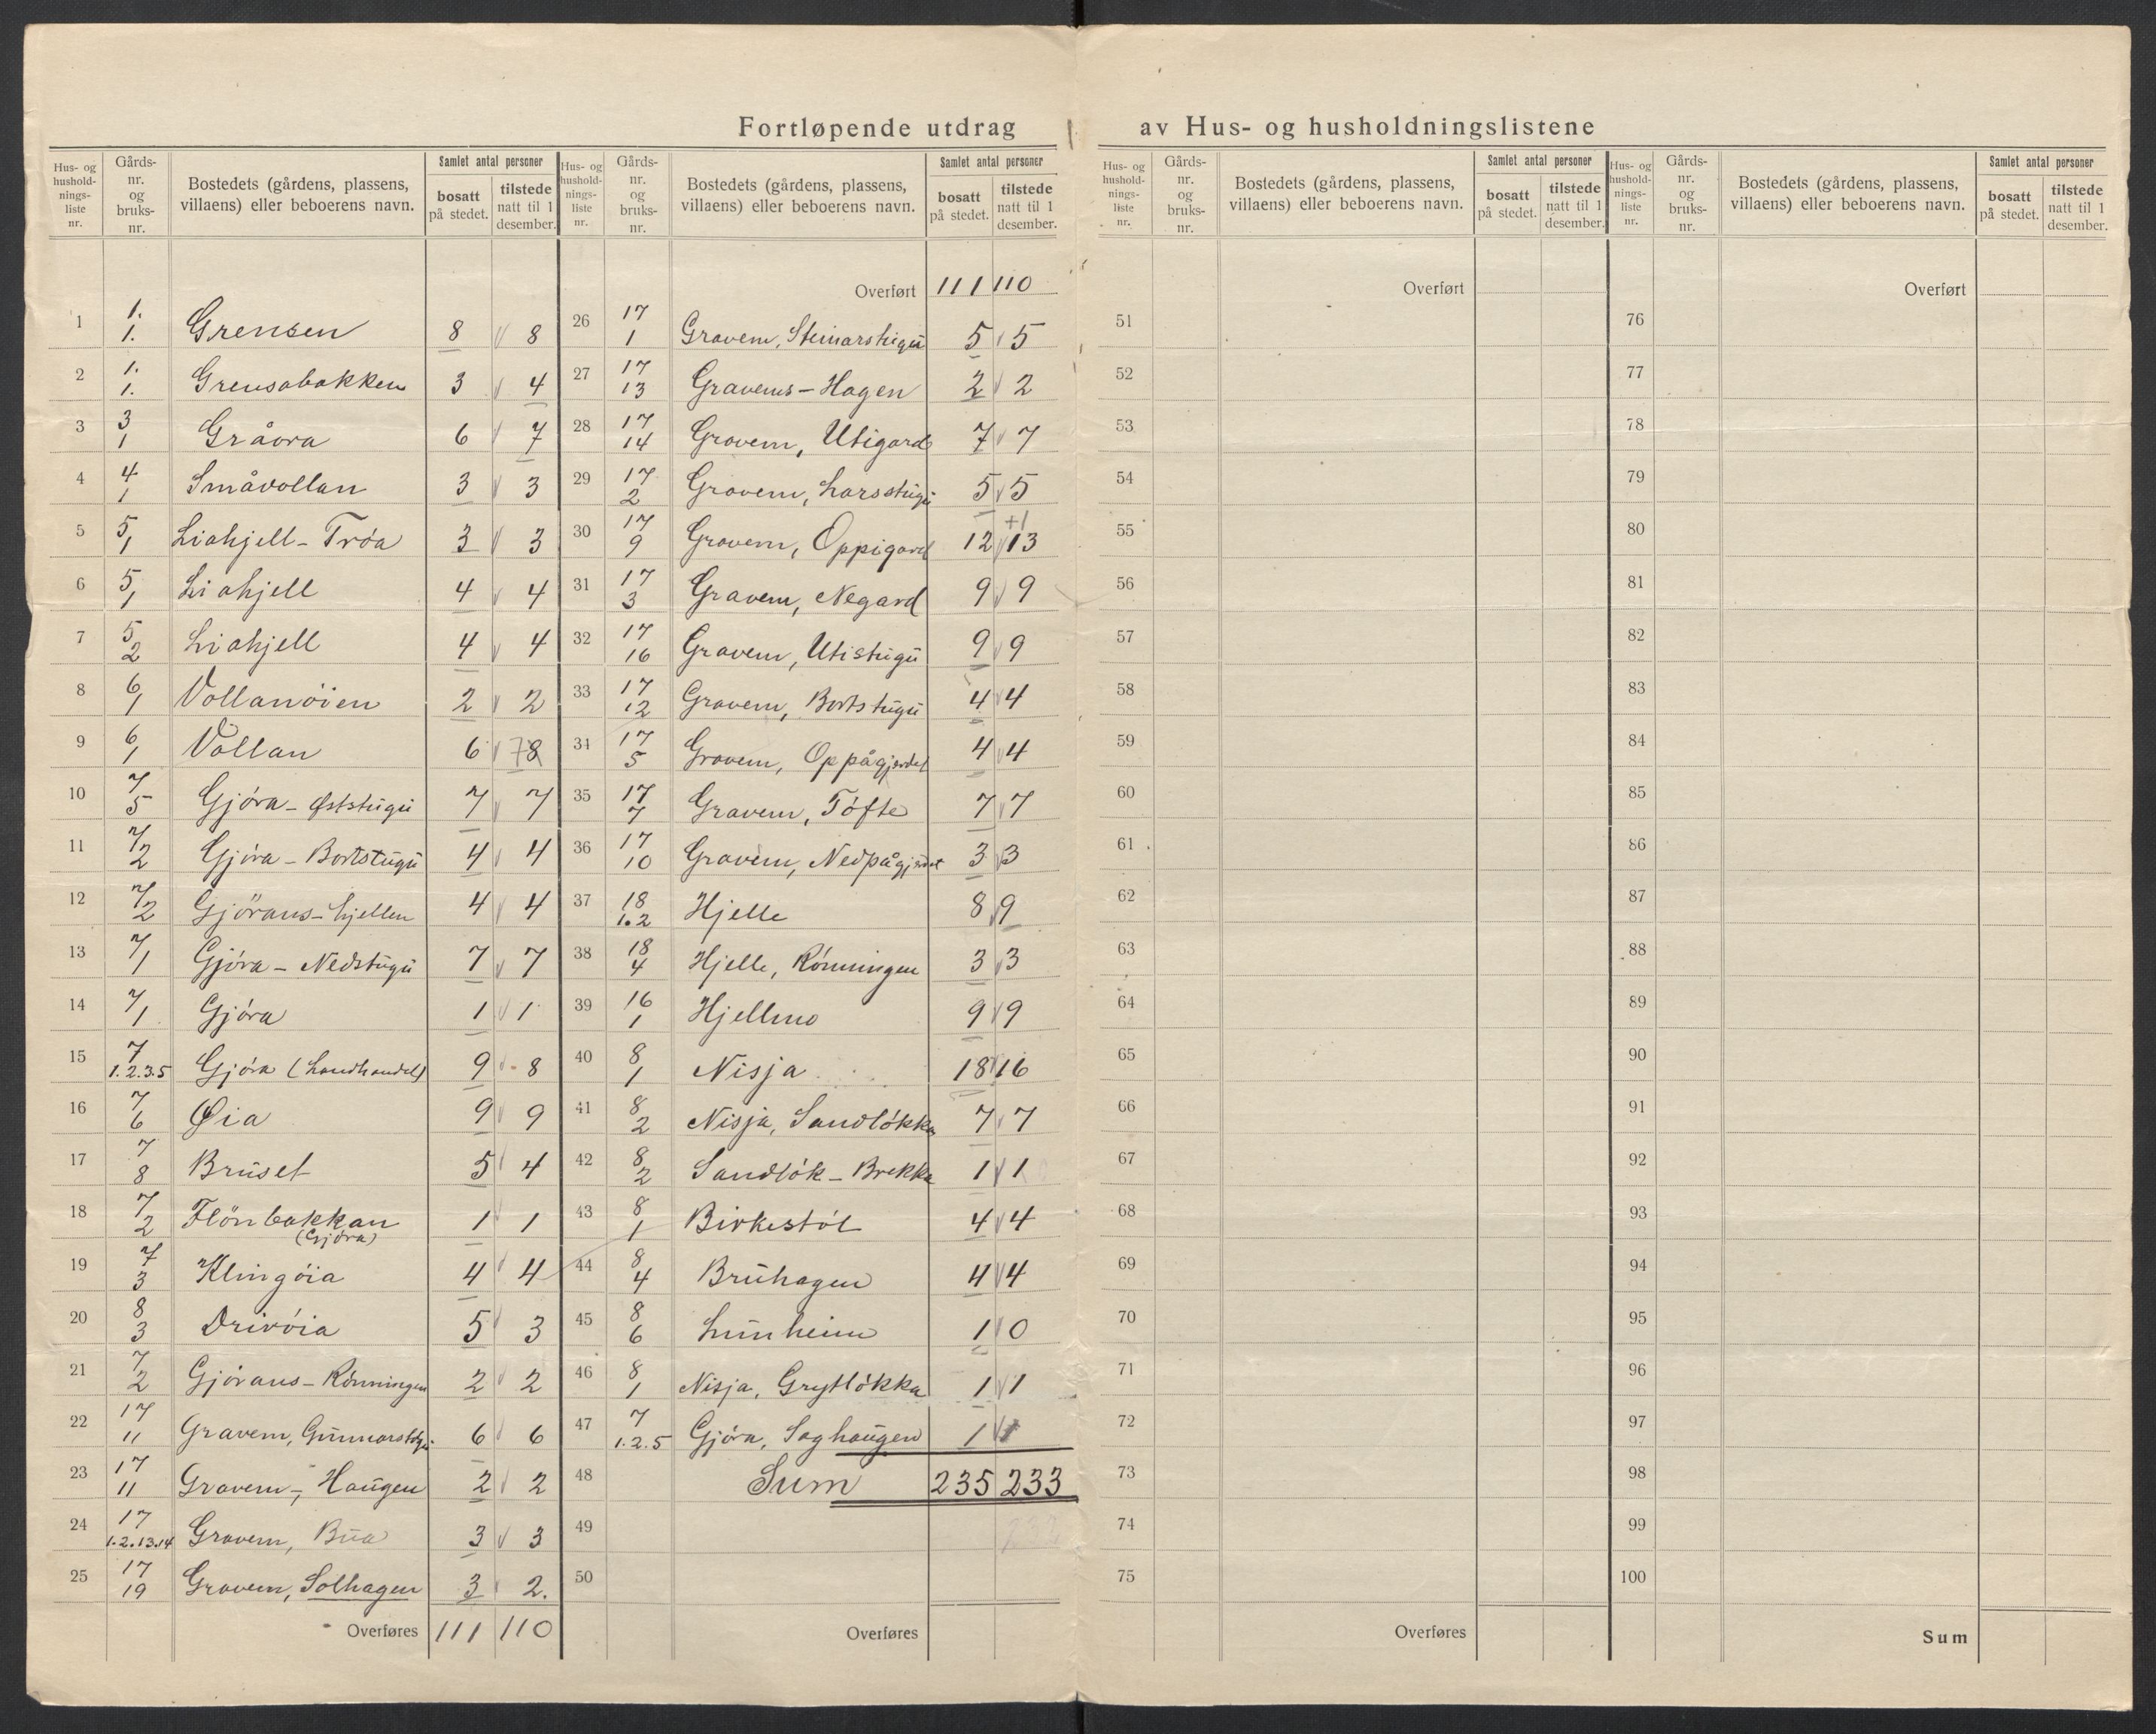 Fortløpende utdrag av Hus- og husholdningslistene
Hus- og husholdnings-liste nr. | Gårds-nr. og bruks-nr. | Bostedets (gårdens, plassens, villaens) eller beboerens navn. | Samlet antal personer | bosatt på stedet. | tilstede natt til 1 desember.
1 | 1. 1. | Grensen | 8 | 8
2 | 1. 1. | Grensabakken | 3 | 4
3 | 3 1 | Gråora | 6 | 7
4 | 4 1 | Småvollan | 3 | 3
5 | 5 1 | Liahjell - Tróa | 3 | 3
6 | 5 1 | Liahjell | 4 | 4
7 | 5 2 | Liahjell | 4 | 4
8 | 6 1 | Vollanöien | 2 | 2
9 | 6 1 | Vollan | 6 | 7 8
10 | 7 5 | Gjóra - Øststúgú | 7 | 7
11 | 7 2 | Gjóra - Bortstúgú | 4 | 4
12 | 7 2 | Gjörans-hjellen | 4 | 4
13 | 7 1 | Gjóra - Nedstúgú | 7 | 7
14 | 7 1 | Gjóra | 1 | 1
15 | 7 1.2.3.5 | Gjóra (Landhandel) | 9 | 8
16 | 7 6 | Øia | 9 | 9
17 | 7 8 | Brúset | 5 | 4
18 | 7 2 | Flönbakkan (Gjóra) | 1 | 1
19 | 7 3 | Klingóia | 4 | 4
20 | 8 3 | Drivóia | 5 | 3
21 | 7 2 | Gjórans - Rónningen | 2 | 2
22 | 17 11 | Gravem, Gúnnarstúgú | 6 | 6
23 | 17 11 | Gravem -, Haúgen | 2 | 2
24 | 17 1.2.13.14 | Gravem, Búa | 3 | 3
25 | 17 19 | Gravem, Solhagen | 3 | 2.
Overføres | 111 | 110
Hus- og husholdnings-liste nr. | Gårds-nr. og bruks-nr. | Bostedets (gårdens, plassens, villaens) eller beboerens navn. | Samlet antal personer | bosatt på stedet. | tilstede natt til 1 desember.
Overført | 111 | 110
26 | 17 1 | Gravem, Steinarstúgú | 5 | 5
27 | 17 13 | Gravems - Hagen | 2 | 2
28 | 17 14 | Gravem, Utigard | 7 | 7
29 | 17 2 | Gravem, Larsstúgú | 5 | 5
30 | 17 9 | Gravem, Oppigard | 12 | +1 13
31 | 17 3 | Gravem, Negard | 9 | 9
32 | 17 16 | Gravem, Utistúgú | 9 | 9
33 | 17 12 | Gravem, Bortstúgú | 4 | 4
34 | 17 5 | Gravem, Oppågjerdet | 4 | 4
35 | 17 7 | Gravem, Tófte | 7 | 7
36 | 17 10 | Gravem, Nedpågjerdet | 3 | 3
37 | 18 1.2 | Hjelle | 8 | 9
38 | 18 4 | Hjelle, Rónningen | 3 | 3
39 | 16 1 | Hjellmo | 9 | 9
40 | 8 1 | Nisja | 18 | 16
41 | 8 2 | Nisja, Sandlókka | 7 | 7
42 | 8 2 | Sandlók - Brekka | 1 | 1
43 | 8 1 | Birkestól | 4 | 4
44 | 8 4 | Brúhagen | 4 | 4
45 | 8 6 | Lúnheim | 1 | 0
46 | 8 1 | Nisja, Grytlókka | 1 | 1
47 | 7 1.2.5 | Gjóra, Saghaúgen | 1 | 1
48 | Sum | 235 | 233
49
50
Overføres
Hus- og husholdnings-liste nr. | Gårds-nr. og bruks-nr. | Bostedets (gårdens, plassens, villaens) eller beboerens navn. | Samlet antal personer | bosatt på stedet. | tilstede natt til 1 desember.
Overført
51
52
53
54
55
56
57
58
59
60
61
62
63
64
65
66
67
68
69
70
71
72
73
74
75
Overføres
Hus- og husholdnings-liste nr. | Gårds-nr. og bruks-nr. | Bostedets (gårdens, plassens, villaens) eller beboerens navn. | Samlet antal personer | bosatt på stedet. | tilstede natt til 1 desember.
Overført
76
77
78
79
80
81
82
83
84
85
86
87
88
89
90
91
92
93
94
95
96
97
98
99
100
Sum